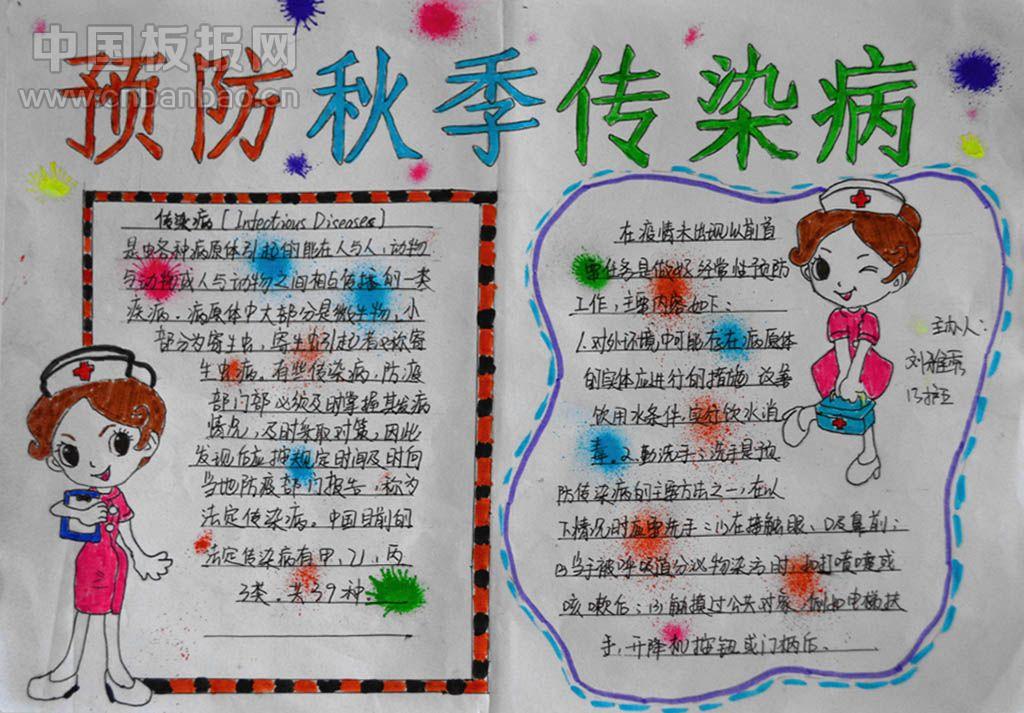 中国板报网
www.cndanbao.cn
预防秋季传染病
传染病(Infectious Diseases)
是由各种病原体引起的能在人与人、动物
与动物或人与动物之间相互传播的一类
疾病。病原体中大部分是微生物，小
部分为寄生虫，寄生虫引起者又称寄
生虫病。有些传染病，防疫
部门都必须及时掌握其发病
情况，及时采取对策，因此
发现后应按规定时间及时向
当地防疫部门报告，称为
法定传染病。中国目前的
法定传染病有甲、乙、丙
3类，共39种
在疫情未出现以前首
要任务是做好经常性预防
工作，主要内容如下：
1.对外环境中可能存在病原体
的实体应进行的措施
饮用水条件，实行饮水消
毒。2.勤洗手：洗手是预
防传染病的主要方法之一，在以
下情况时应要洗手：(1)在接触眼、口及鼻前；
(2)当手被呼吸道分泌物染污时，如打喷嚏或
咳嗽后；(3)触摸过公共对象，例如电梯扶
手，升降机按钮或门柄后。
主办人：
刘雅秀